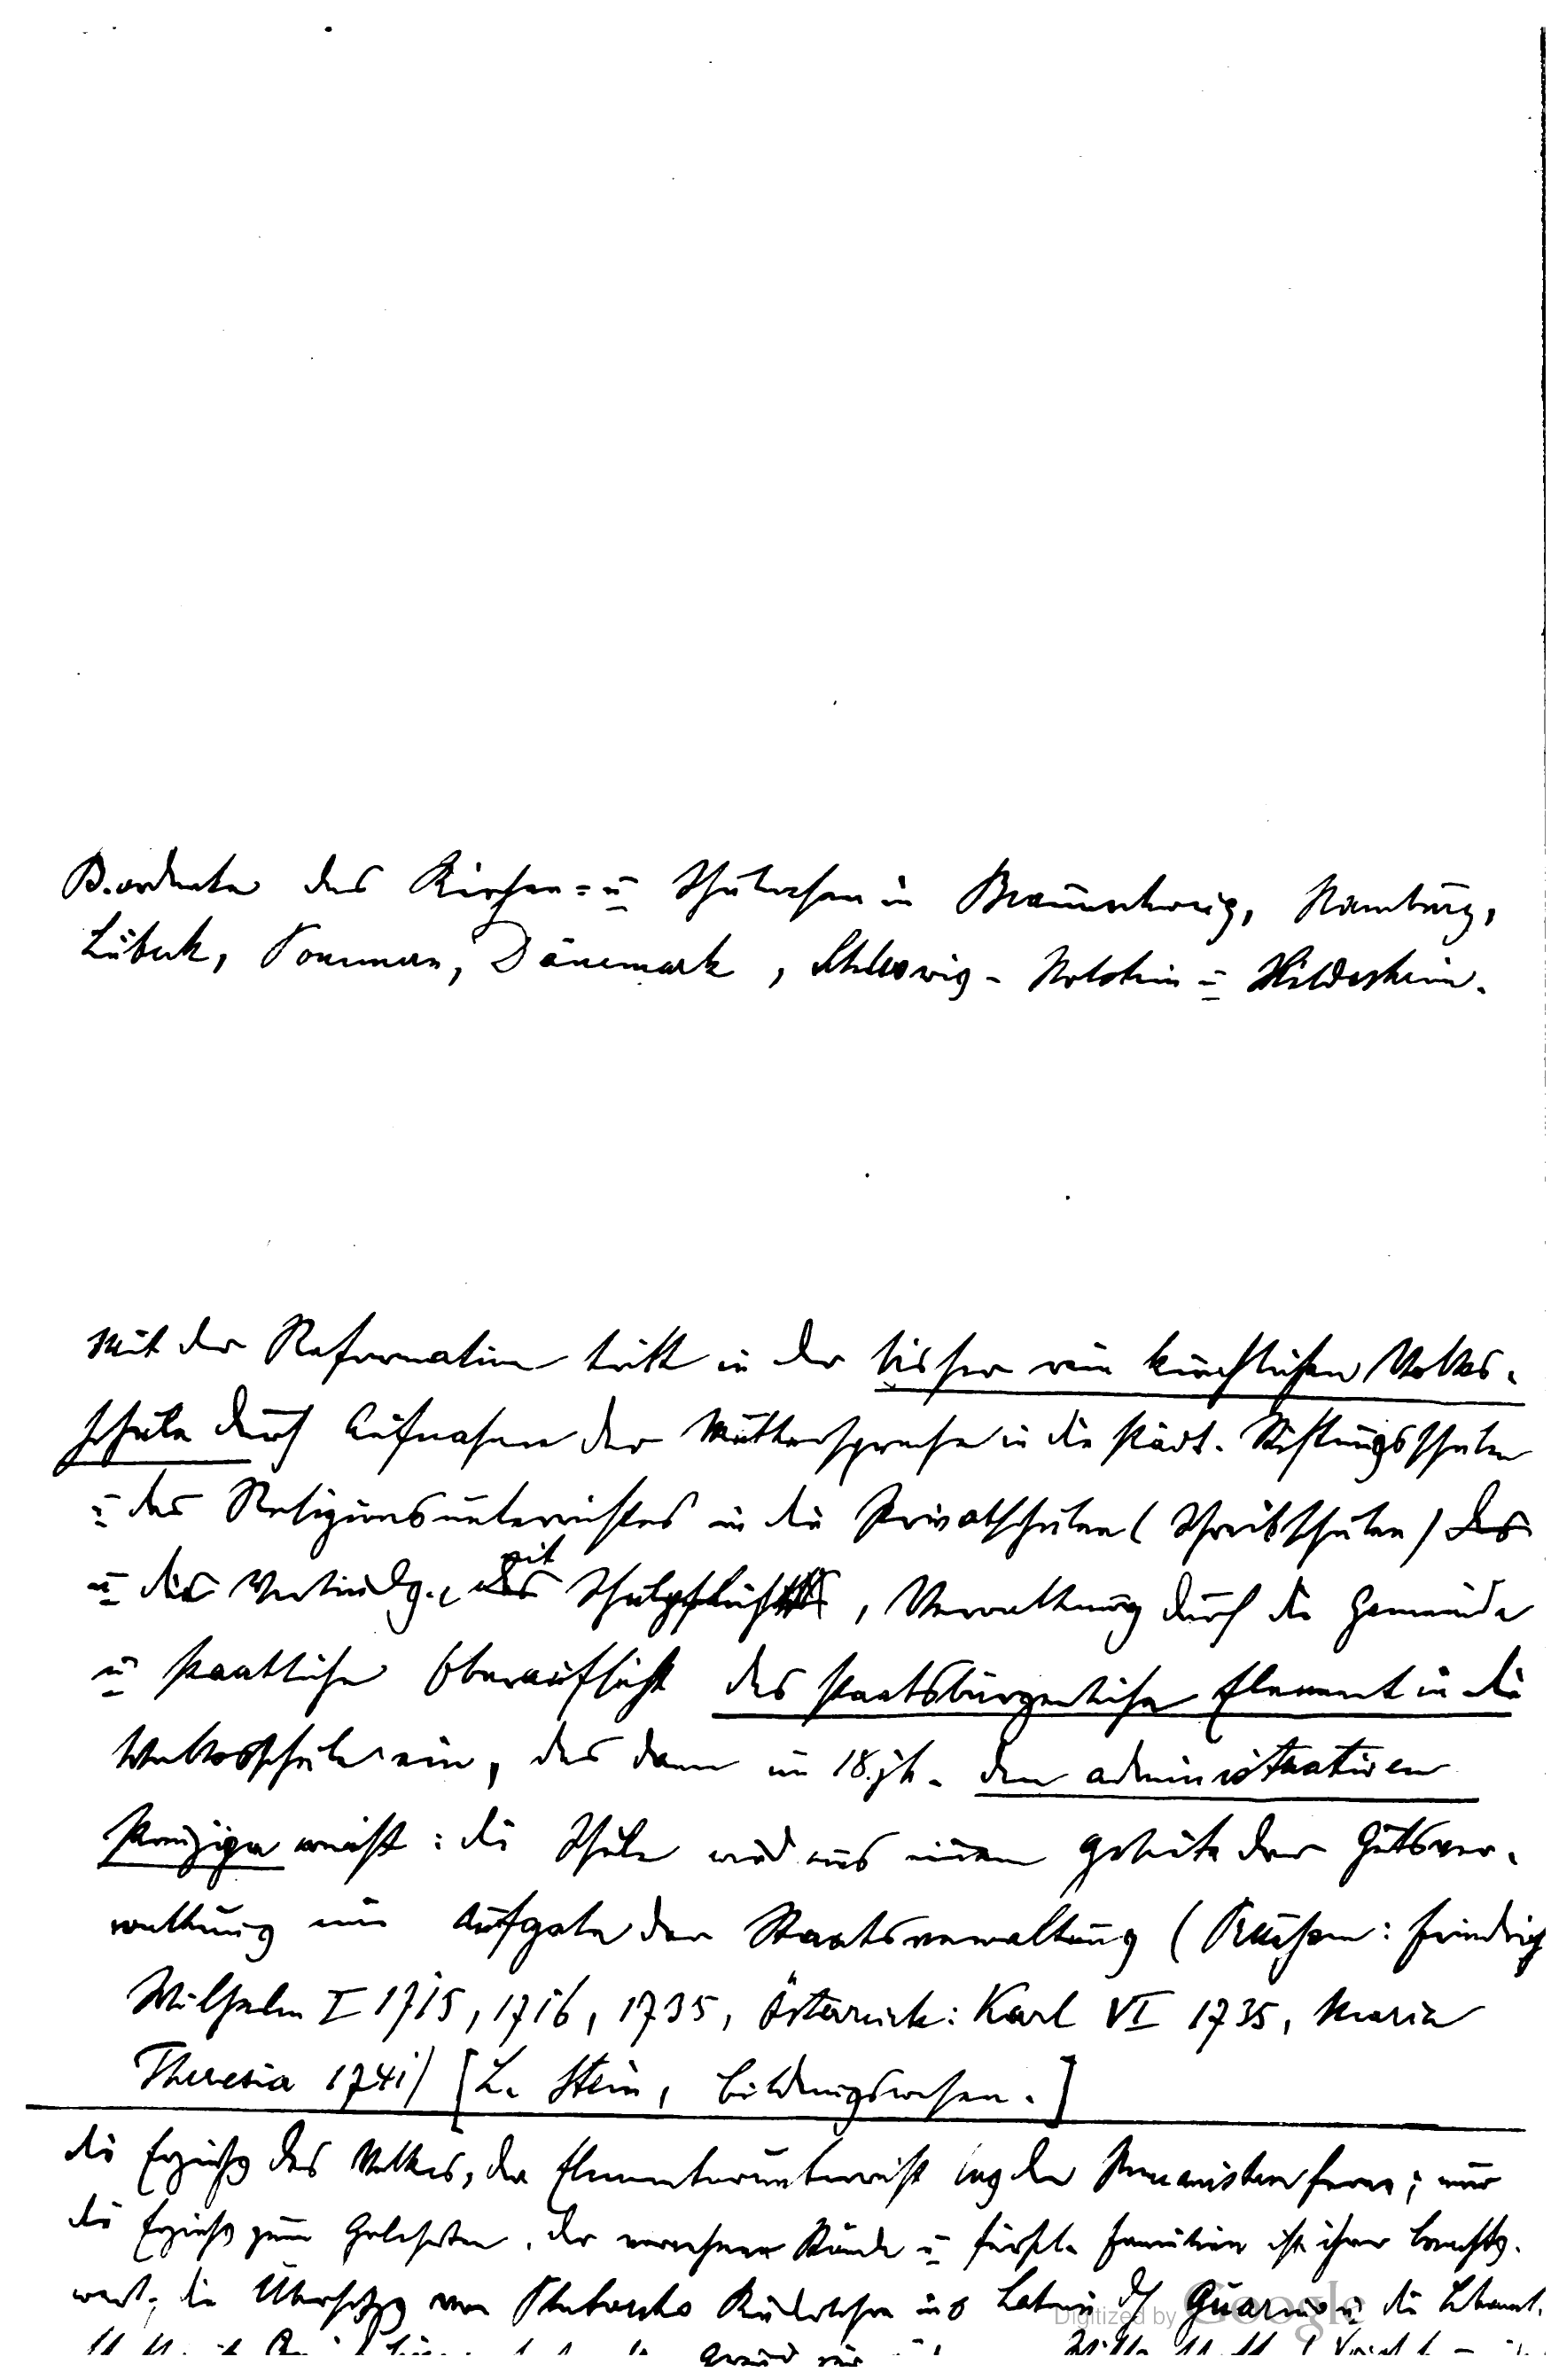 B. ordnete das Kirchen- u Schulwesen in Braunschweig, Hamburg,
Lübeck, Pommern, Dänemark, Schleswig-Holstein u Hildesheim.
Mit der Reformation tritt in der bisher rein kirchlichen Volks-
schule durch Aufnahme der Muttersprache in die städt. Stiftungsschulen
u des Religionsunterrichtes in die Privatschulen (Schreibschulen) das
u die Verbindg. mit Schulpflicht, Verwaltung durch die Gemeinde
u staatliche Oberaufsicht das staatsbürgerliche Element in die
Volksschule ein, das dann im 18. jh. dem administrativen
Prinzipe weicht: die Schule wird aus einem Gebiete der Gutsver-
waltung eine Aufgabe der Staatsverwaltung (Preußen: Friedrich
Wilhelm I 1715, 1716, 1735, Österreich: Karl VI 1735, Maria
Theresia 1741) [L. Stein, Bildungswesen.]
die Erziehg des Volkes, der Elementarunterricht lag den Humanisten ferne; nur
die Erziehg zum Gelehrten, der vornehmen Stände u fürstl. Familien ist ihrer beachtg.
wert; die Übersetzg von Plutarchs Kinderlehre ins Latein dch Guarino u die
Digitized by Google